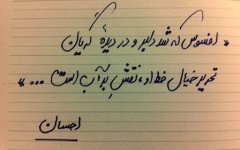 « افسوس که شد دلبر و در دیدهٔ گریان
تحریر خیال خط او نقش بر آب است ... »
احسان